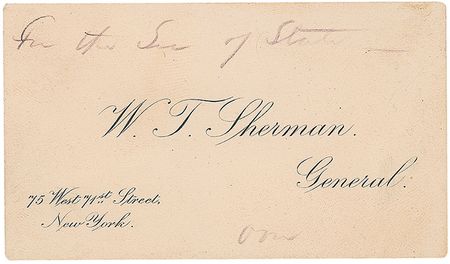 For the Sec of State
W. T. Sherman.
General.
75 West 71st Street,
New York.